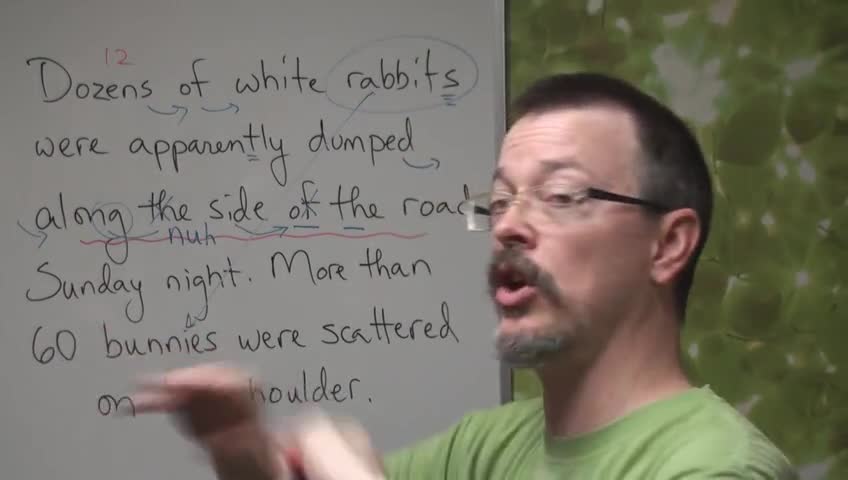 12
Dozens of white rabbits
were apparently dumped
along the side of the road
nuh
Sunday night. More than
60 bunnies were scattered
on houlder.